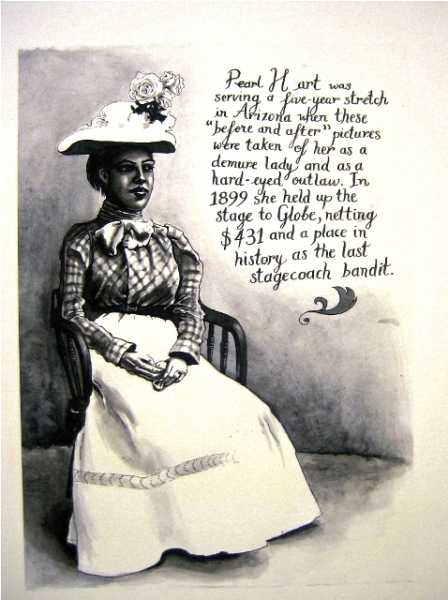 Pearl Hart was
serving a five-year stretch
in Arizona when these
"before and after" pictures
were taken of her as a
demure lady and as a
hard-eyed outlaw. In
1899 she held up the
stage to Globe, netting
$431 and a place in
history as the last
stagecoach bandit.